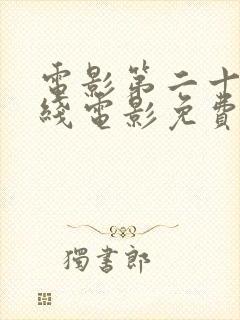 電影第二十
綫電影免費
獨書郎